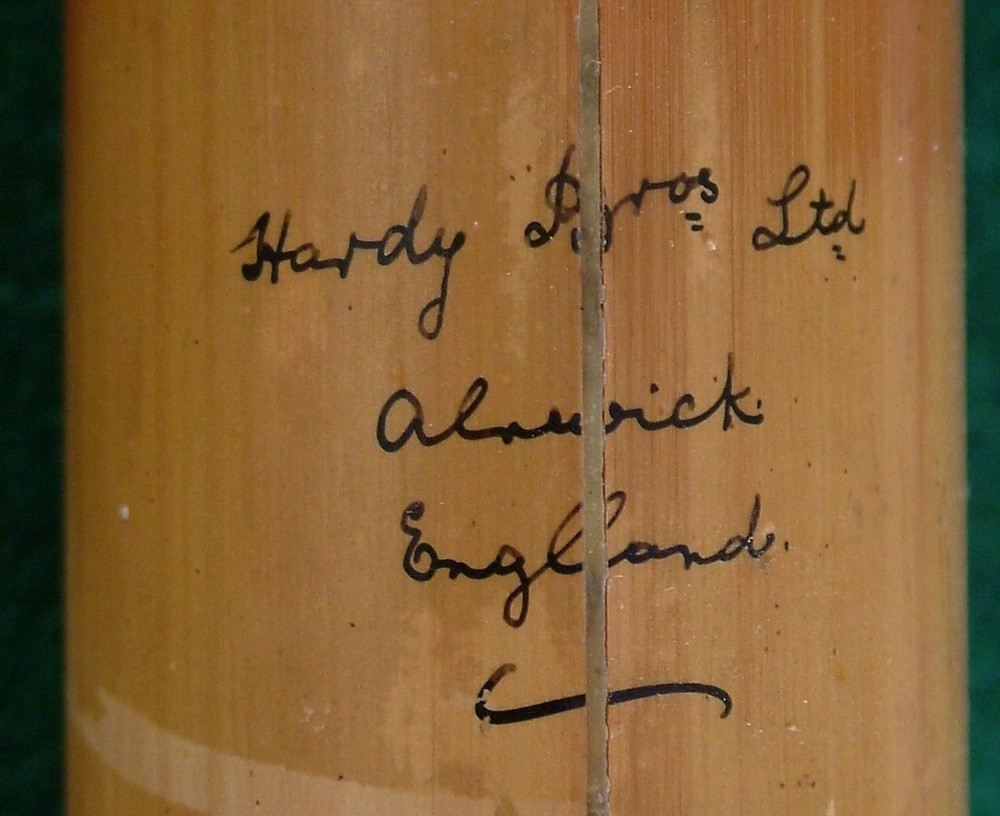 Hardy Bros Ltd
Alnwick.
England.